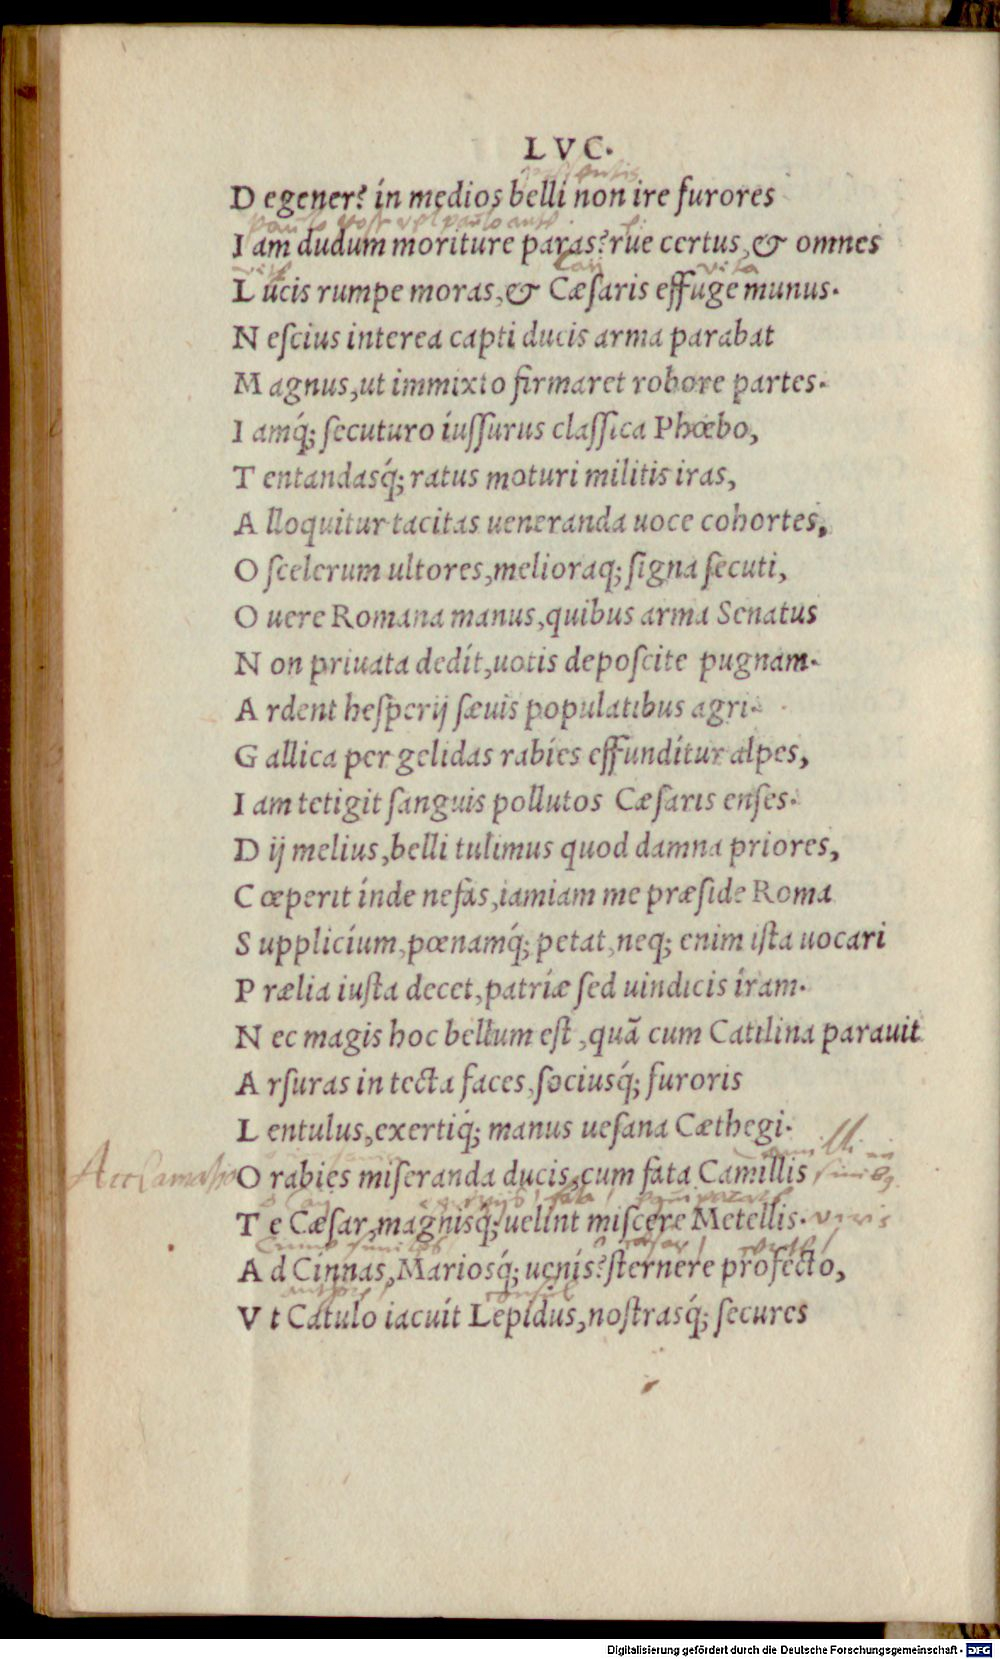 L V C.
D egener? in medios belli non ire furores
I am dudum moriture paras? rue certus, & omnes
vitæ
Caij
vita
L ucis rumpe moras, & Cæsaris effuge munus.
N escius interea capti ducis arma parabat
M agnus, ut immixto firmaret robore partes.
I amq́; secuturo iussurus classica Phœbo,
T entandasq́; ratus moturi militis iras,
A lloquitur tacitas ueneranda uoce cohortes,
O scelerum ultores, melioraq; signa secuti,
O uere Romana manus, quibus arma Senatus
N on priuata dedit, uotis deposcite pugnam.
A rdent hesperij sæuis populatibus agri.
G allica per gelidas rabies effunditur alpes,
I am tetigit sanguis pollutos Cæsaris enses.
D ij melius, belli tulimus quod damna priores,
C œperit inde nefas, iamiam me præside Roma
S upplicium, pœnamq́; petat, neq; enim ista uocari
P rælia iusta decet, patriæ sed uindicis iram.
N ec magis hoc bellum est, quã cum Catilina parauit
A rsuras in tecta faces, sociusq́; furoris
L entulus, exertiq́; manus uesana Cæthegi.
Acclamatio
O rabies miseranda ducis, cum fata Camillis
T e Cæsar, magnisq́; uelint miscere Metellis.
viris
A d Cinnas, Mariosq́; uenis? sternere profecto,
consul
V t Catulo iacuit Lepidus, nostrasq́; secures
Digitalisierung gefördert durch die Deutsche Forschungsgemeinschaft - DFG